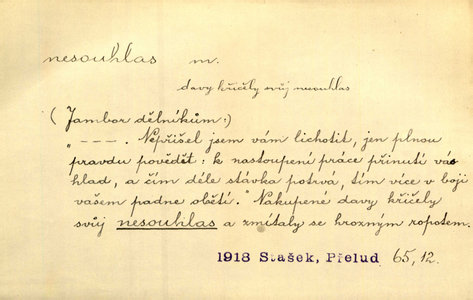 nesouhlas m.
davy křičely svůj nesouhlas
(Jambor dělníkům:)
„ – – – . Nepřišel jsem vám lichotit, jen plnou
pravdu povědět: k nastoupení práce přinutí vás
hlad, a čím déle stávka potrvá, tím více v boji
vašem padne obětí." Nakupené davy křičely
svůj nesouhlas a zmítaly se hrozným ropotem.
1918 Stašek, Přelud 65,12.